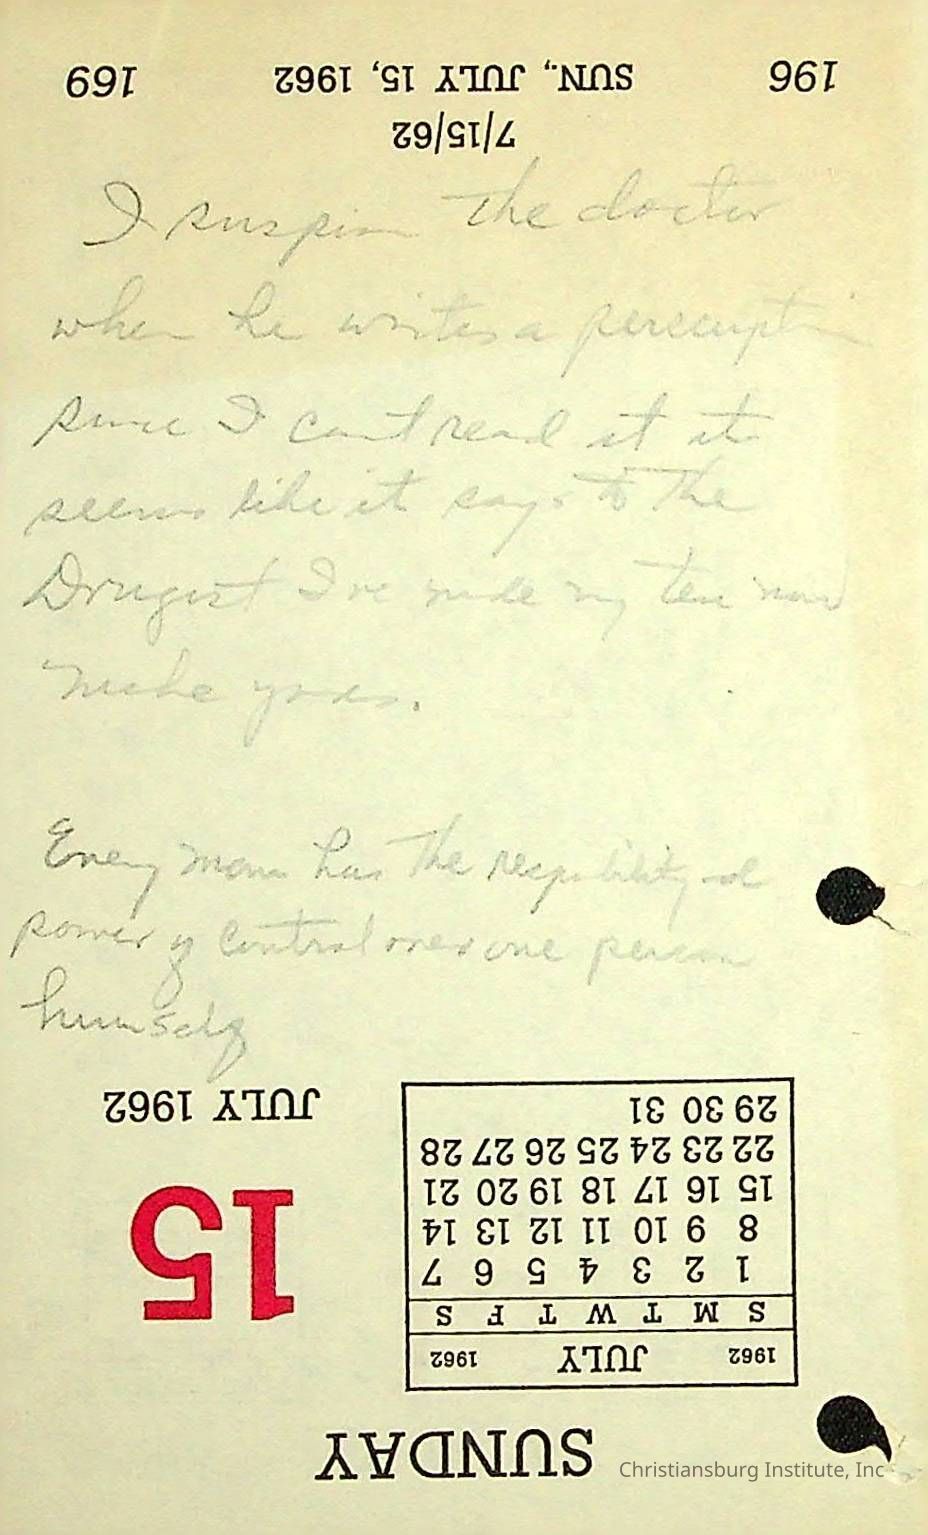 169 SUN., JULY 15, 1962 196
7/15/62
I suspin the doctor
when he writes a percscupti
since I cant read it it
seems like it says to the
Drugist I've made my ten now
make yours.
Every man has the respibility of
power of control over one person
himself
JULY 1962
15
29 30 31
22 23 24 25 26 27 28
15 16 17 18 19 20 21
8 9 10 11 12 13 14
1 2 3 4 5 6 7
S M T W T F S
1962 JULY 1962
SUNDAY
Christiansburg Institute, Inc